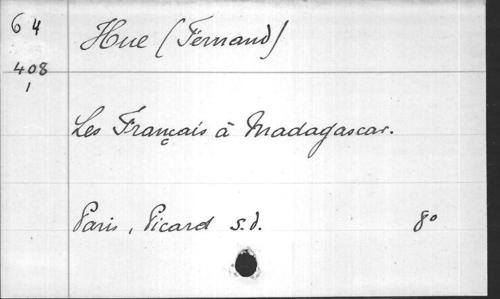 64
Hue (Fernand)
408
1
Les Français à Madagascar.
Paris, Picard s.d. 8°